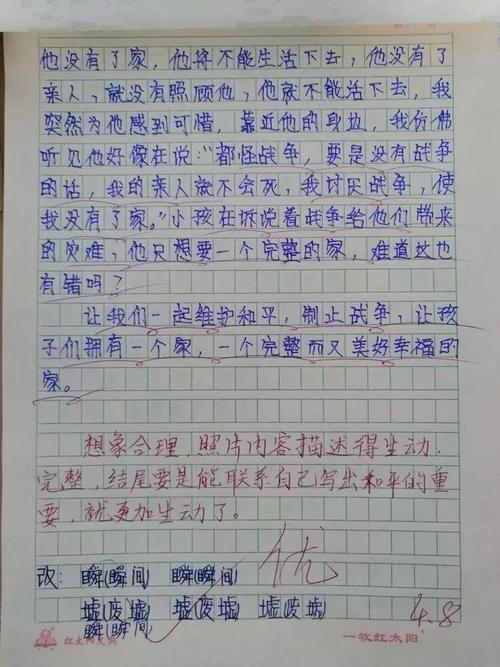 他没有了家，他将不能生活下去，他没有了
亲人，就没有照顾他，他就不能活下去，我
突然为他感到可惜，靠近他的身边，我仿佛
听见他好像在说：“都怪战争，要是没有战争
的话，我的亲人就不会死，我讨厌战争，使
我没有了家。”小孩在诉说着战争给他们带来
的灾难，他只想要一个完整的家，难道这也
有错吗？
让我们一起维护和平，制止战争，让孩
子们拥有一个家，一个完整而又美好幸福的
家。
想象合理，照片内容描述得生动、
完整，结尾要是能联系自己写出和平的重
要，就更加生动了。
优
改：瞬(瞬间) 瞬(瞬间)
墟(废墟) 墟(废墟) 墟(废墟)
瞬(瞬间)
4.8
红太阳文具
一枚红太阳